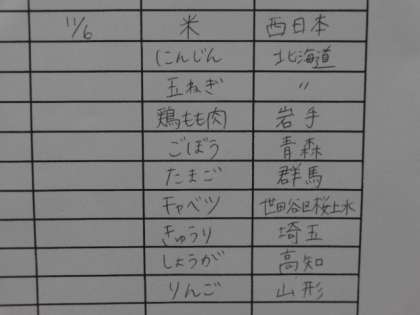 11/6 米 西日本
にんじん 北海道
玉ねぎ 〃
鶏もも肉 岩手
ごぼう 青森
たまご 群馬
キャベツ 世田谷区桜上水
きゅうり 埼玉
しょうが 高知
りんご 山形